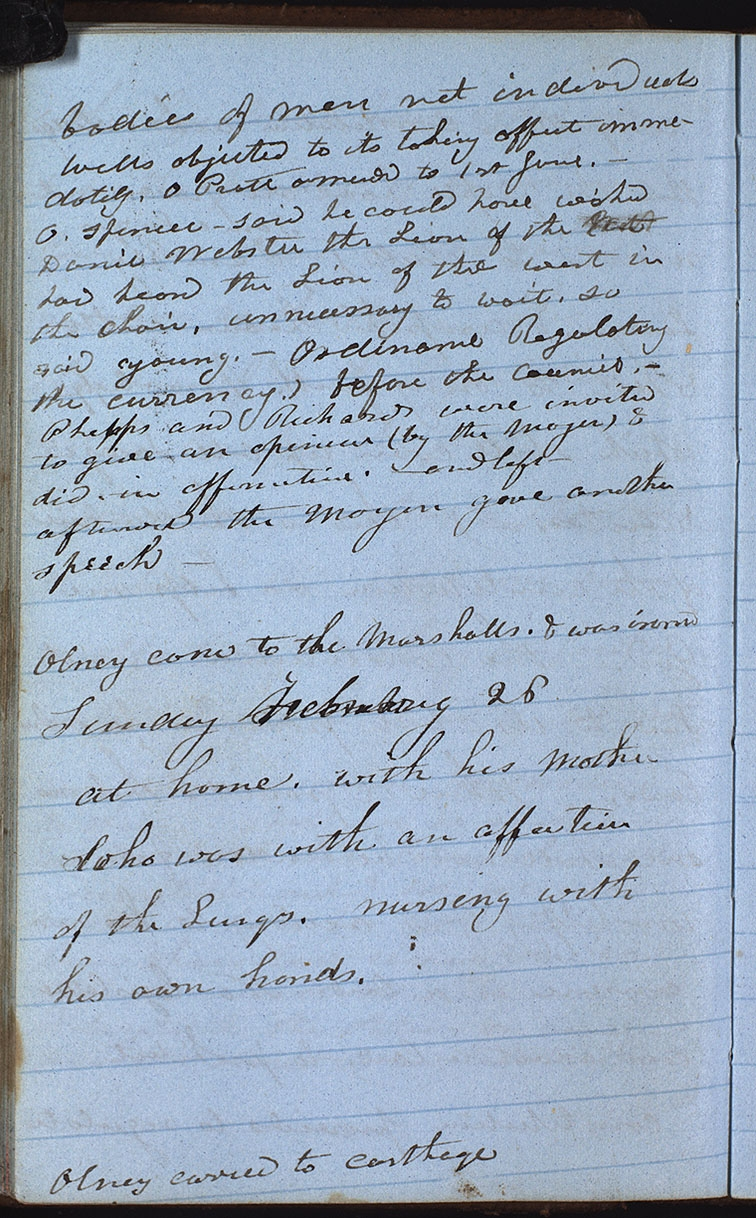 bodies of men not individuals
Wells objected to its taking effect imme-
dotily. O Pratt amend to 1st June. —
O. Spencer - said he could have wished
Daniel Webster the Lion of the
had heard the Lion of the west in
the chair, unnecessary to wait. so
said young. — Ordinance Regulating
the currency) before the council. —
Phelps and Richards were invited
to give an opinion (by the Mayor) &
did. in affirmative. — and left —
afterward the Mayor gave another
speech —
Olney came to the Marshalls. & was
Sunday February 26
at home. with his Mother
who was with an affection
of the Lungs. nursing with
his own hands.
Olney carried to carthage